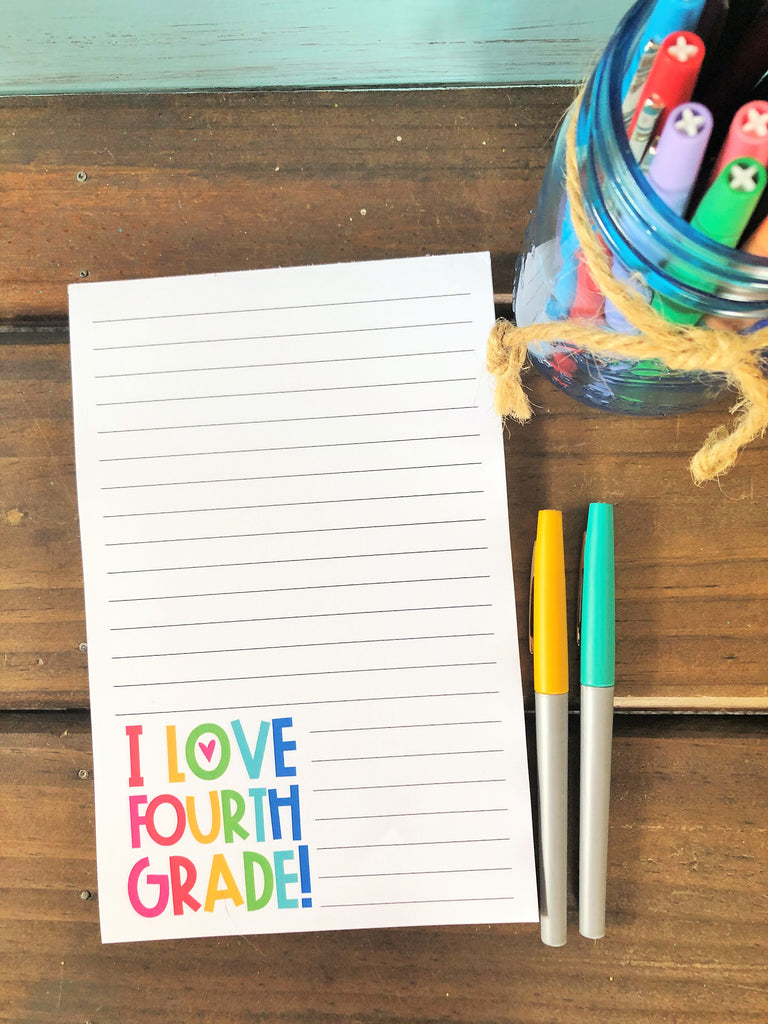 I LOVE
FOURTH
GRADE!